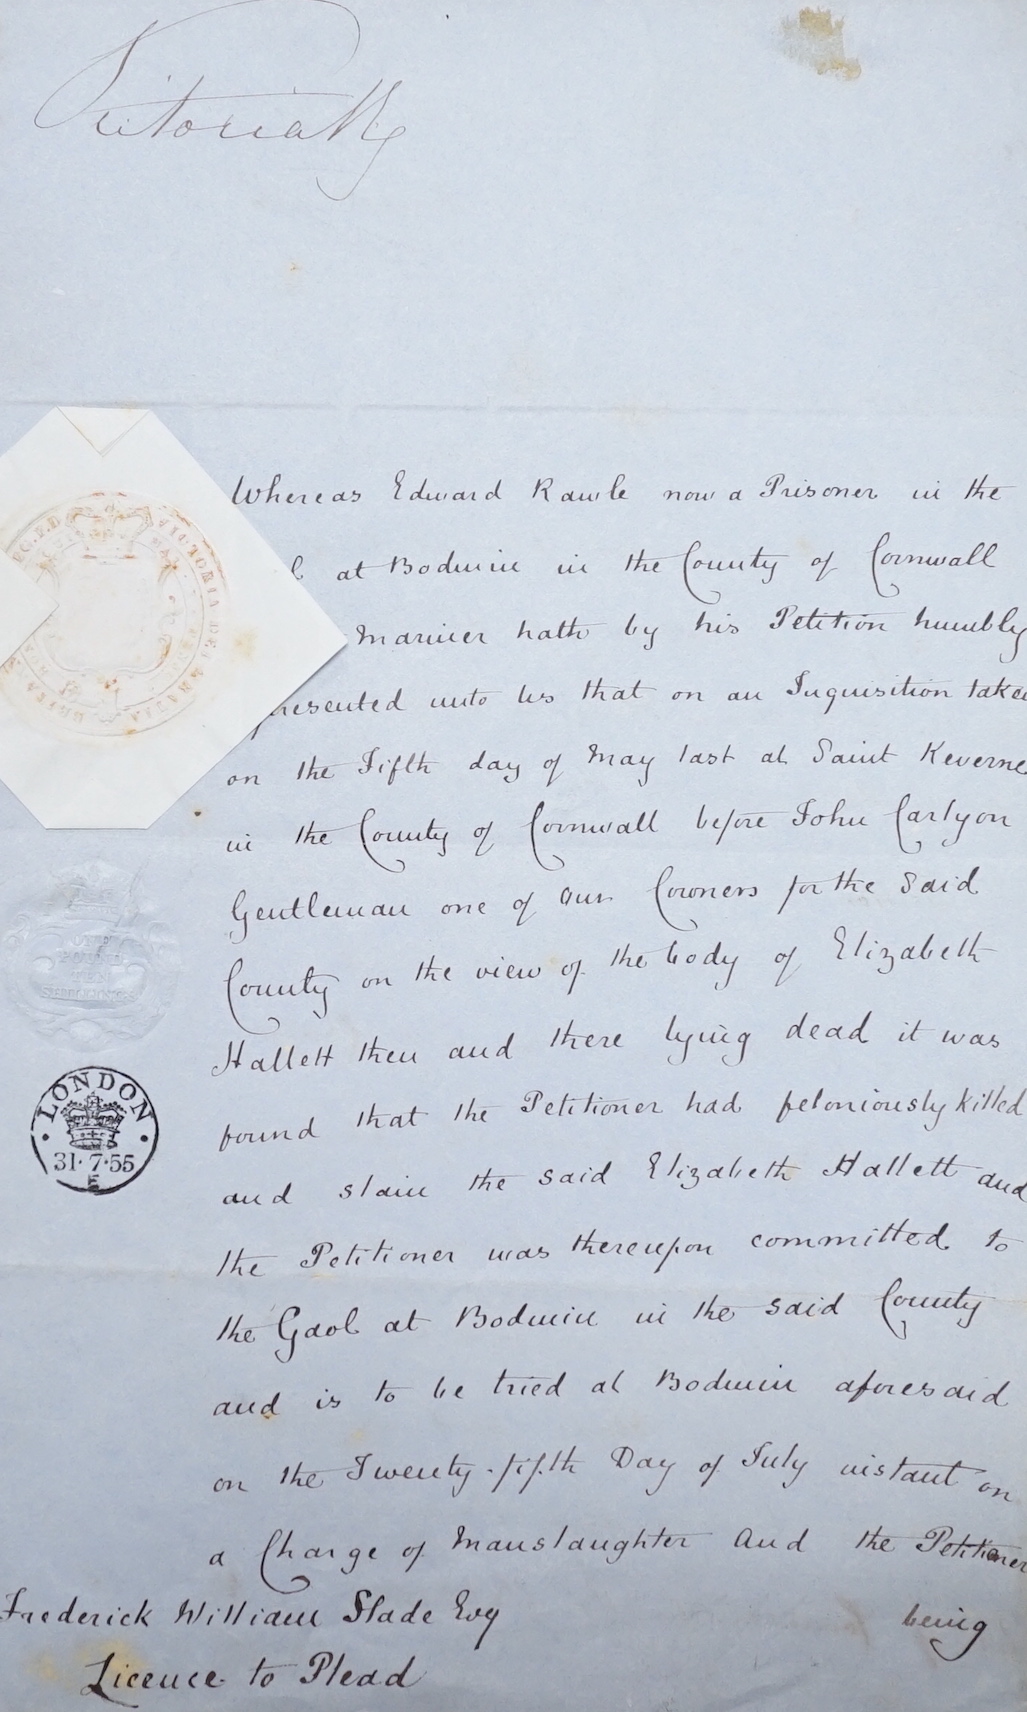 Victoria R
Whereas Edward Rawle now a Prisoner in the
at Bodmin in the County of Cornwall
Mariner hath by his Petition humbly
presented unto Us that on an Inquisition taken
on the Fifth day of May last at Saint Keverne
in the County of Cornwall before John Carlyon
Gentleman one of Our Coroners for the Said
County on the view of the body of Elizabeth
Hallett then and there lying dead it was
found that the Petitioner had feloniously killed
and slain the said Elizabeth Hallett and
the Petitioner was thereupon committed to
the Gaol at Bodmin in the said County
and is to be tried at Bodmin aforesaid
on the Twenty-fifth Day of July instant on
a Charge of Manslaughter And the Petitioner
being
Frederick William Slade Esq
Licence to Plead
VICTORIA DEI GRATIA
LONDON
31·7·55